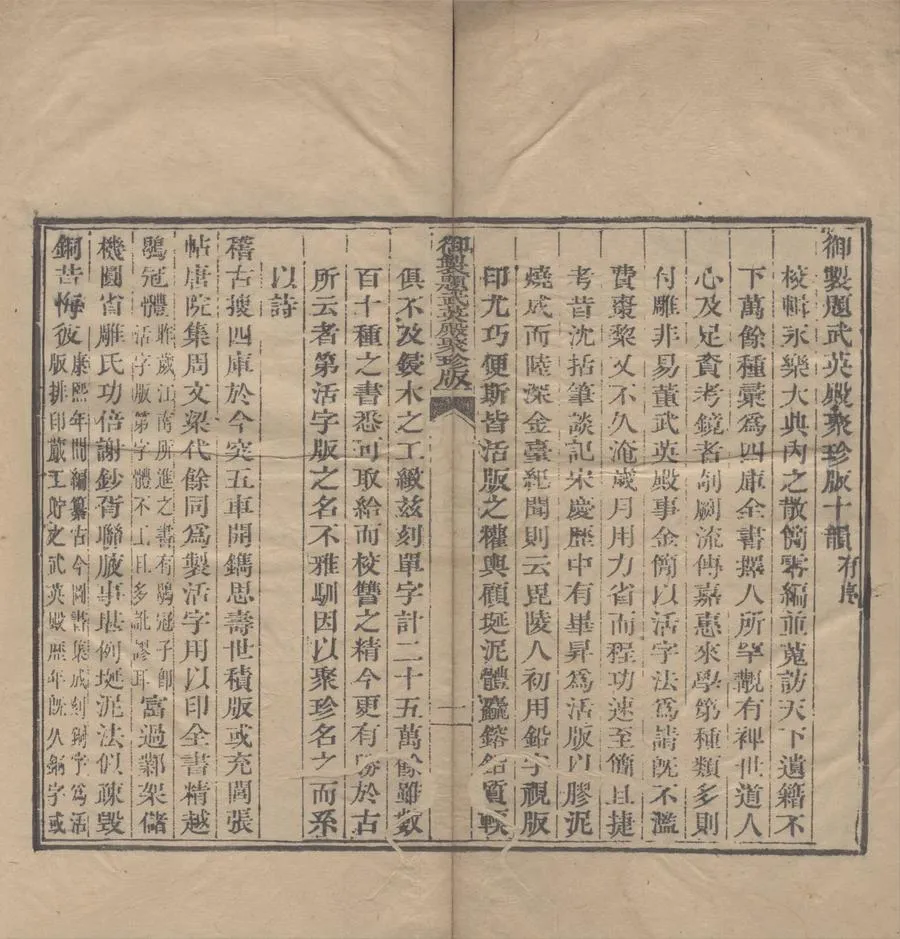 御製題武英殿聚珍版十韻有序
校輯永樂大典內之散簡零編並蒐訪天下遺籍不
下萬餘種彙為四庫全書擇人所罕覯有裨世道人
心及足資考鏡者剞劂流傳嘉惠來學第種類多則
付雕非易董武英殿事金簡以活字法為請既不濫
費棗梨又不久淹歲月用力省而程功速至簡且捷
考昔沈括筆談記宋慶歷中有畢昇為活版以膠泥
燒成而陸深金臺紀聞則云毘陵人初用鉛字視版
印尤巧便斯皆活版之權輿顧埏泥體麤鎔鉛質輭
御製題武英殿聚珍版
一
俱不及鋟木之工緻茲刻單字計二十五萬餘雖數
百十種之書悉可取給而校讐之精今更有勝於古
所云者第活字版之名不雅馴因以聚珍名之而系
以詩
稽古搜四庫於今突五車開鐫思壽世積版或充閭張
帖唐院集周文梁代餘同為製活字用以印全書精越
鶡冠體昨歲江南所進之書有鶡冠子即活字版第字體不工且多訛謬耳富過鄴架儲
機圓省雕氏功倍謝鈔胥聯腋事堪例埏泥法似疎毀
銅昔悔彼康熙年間編纂古今圖書集成刻銅字為活版排印蕆工貯之武英殿歷年既久銅字或